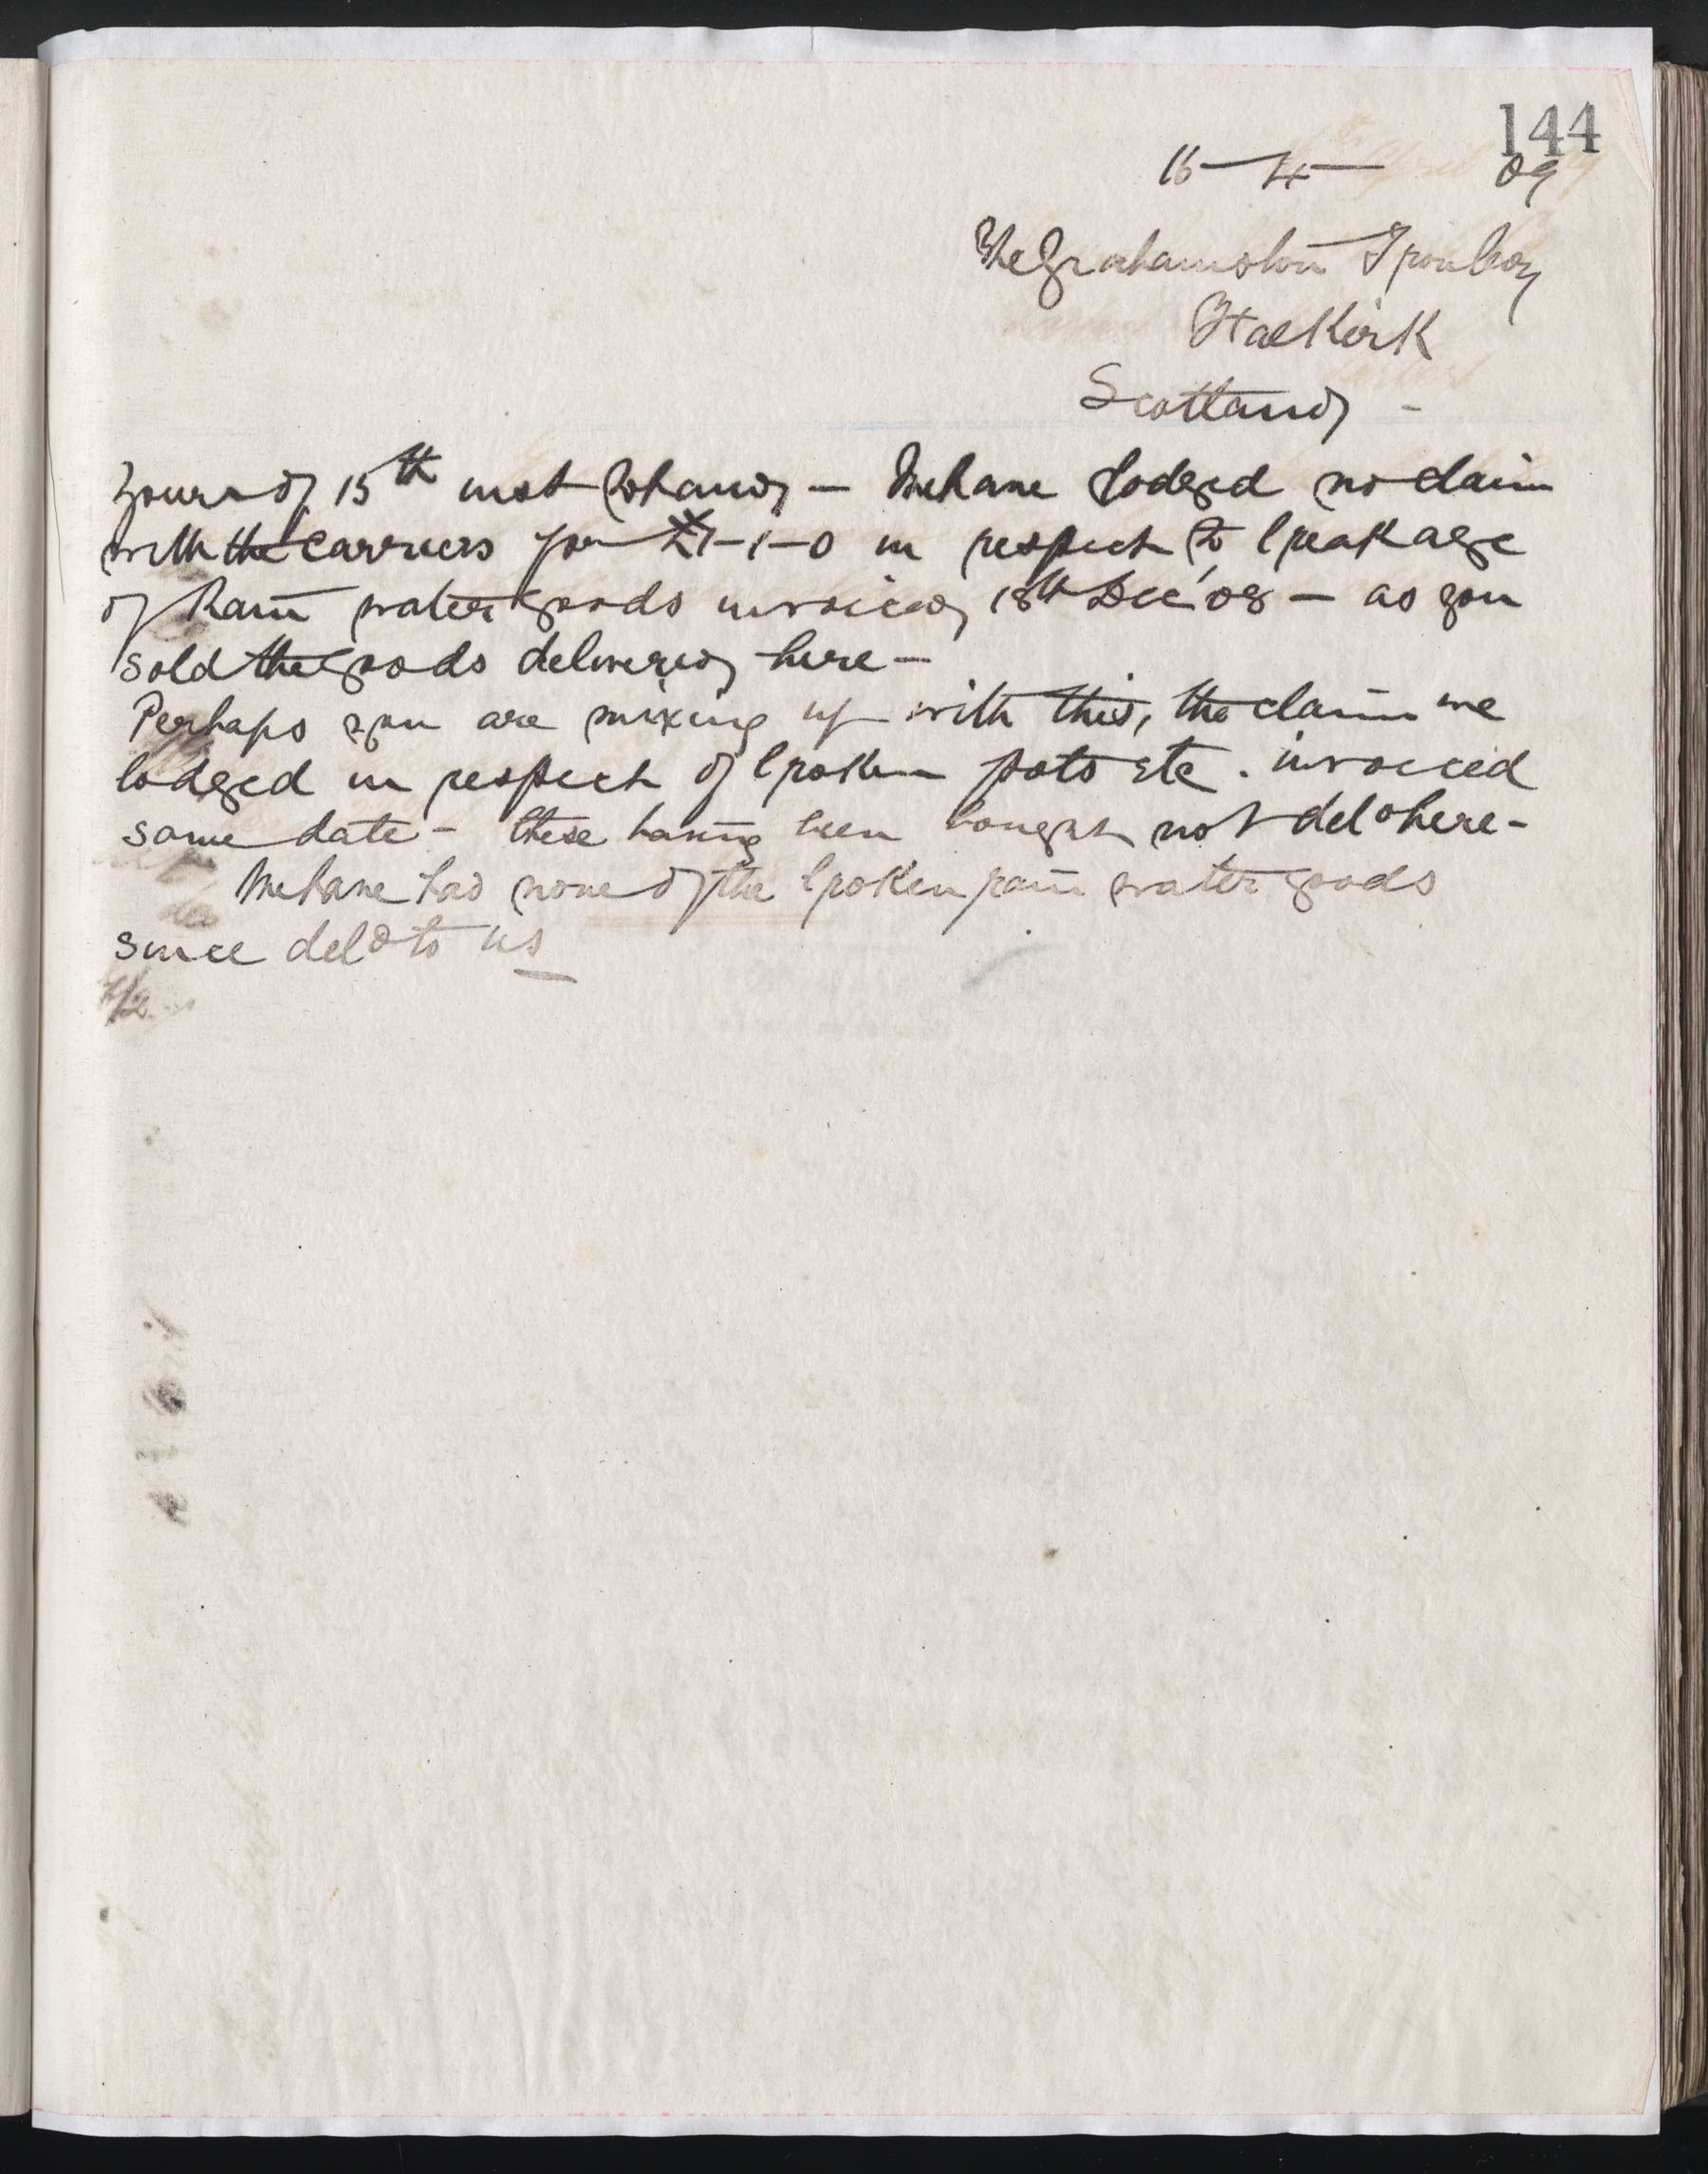 144
16 – 4 – 09
The Grahamston Iron Coy
Falkirk
Scotland -
Yours of 15th inst to hand — We have lodged no claim
with the carriers for £1–1–0 in respect to breakage
of Rain water goods invoiced 18th Dec '08 — as you
sold the goods delivered here —
Perhaps you are mixing up with this, the claim we
lodged in respect of broken pots etc. invoiced
same date – these having been bought not deld here -
We have had none of the broken rain water goods
since deld to us